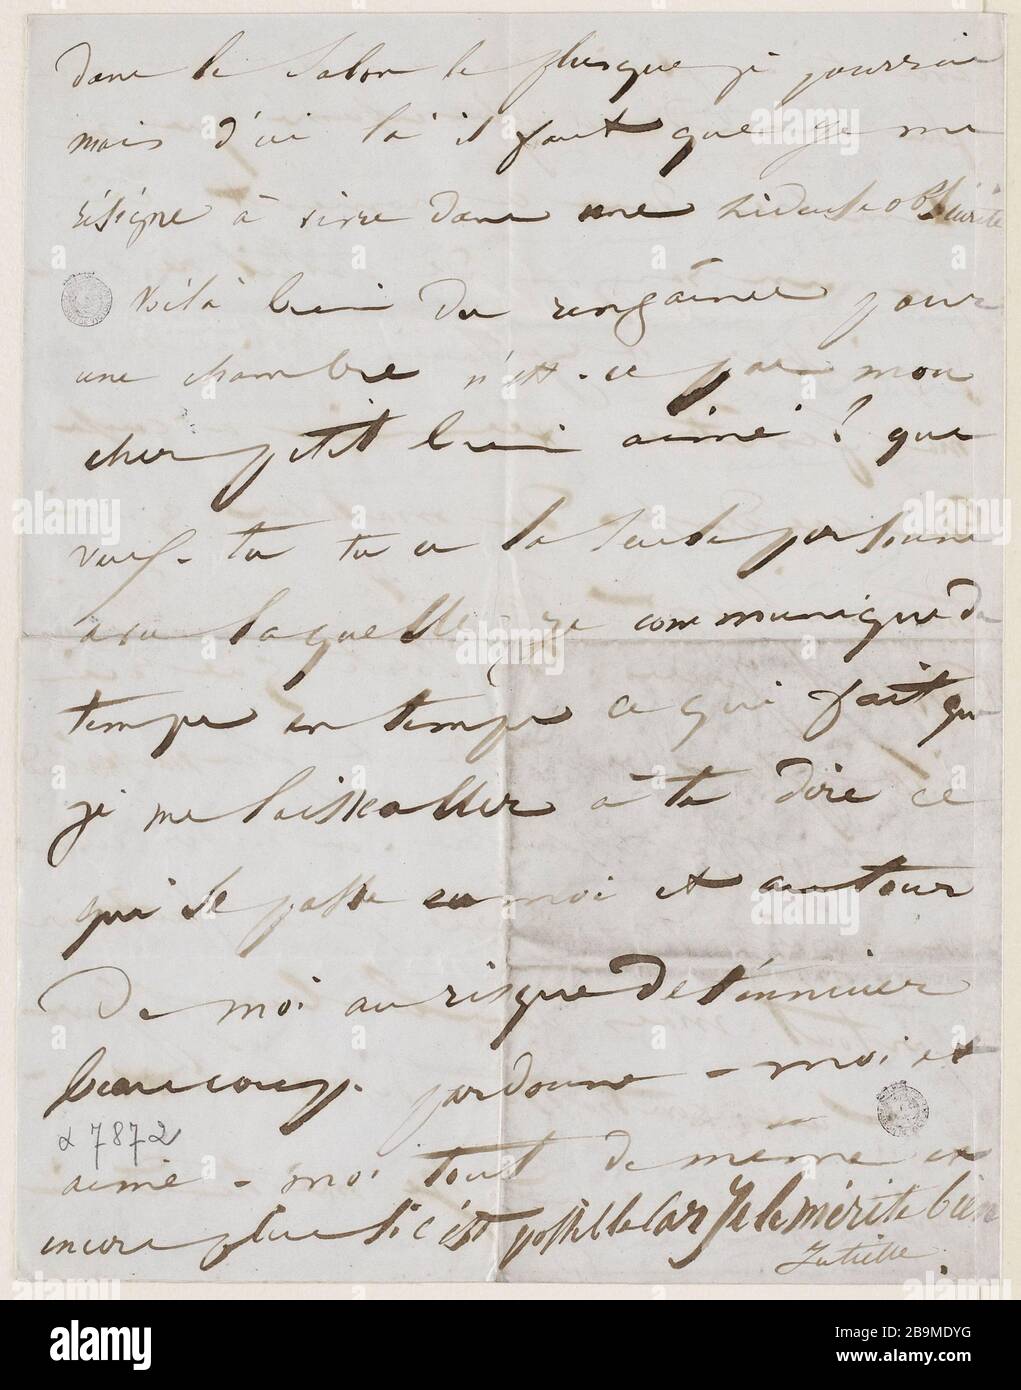 dans le salon le plus que je pourrai
mais d'ici là il faut que je me
résigne à vivre dans une hideuse obscurité
Voilà bien du rengaines pour
une chambre n'est-ce pas mon
cher petit bien aimé ? que
veux-tu tu es la seule personne
avec laquelle je communique de
temps en temps ce qui fait que
je me laisse aller à te dire ce
qui se passe en moi et autour
de moi au risque de t'ennuier
beaucoup. pardonne-moi et
α 7872
aime-moi tout de même et
encore plus si c'est possible car je le mérite bien
Juliette.
alamy
Image ID: 2B9MDYG
www.alamy.com